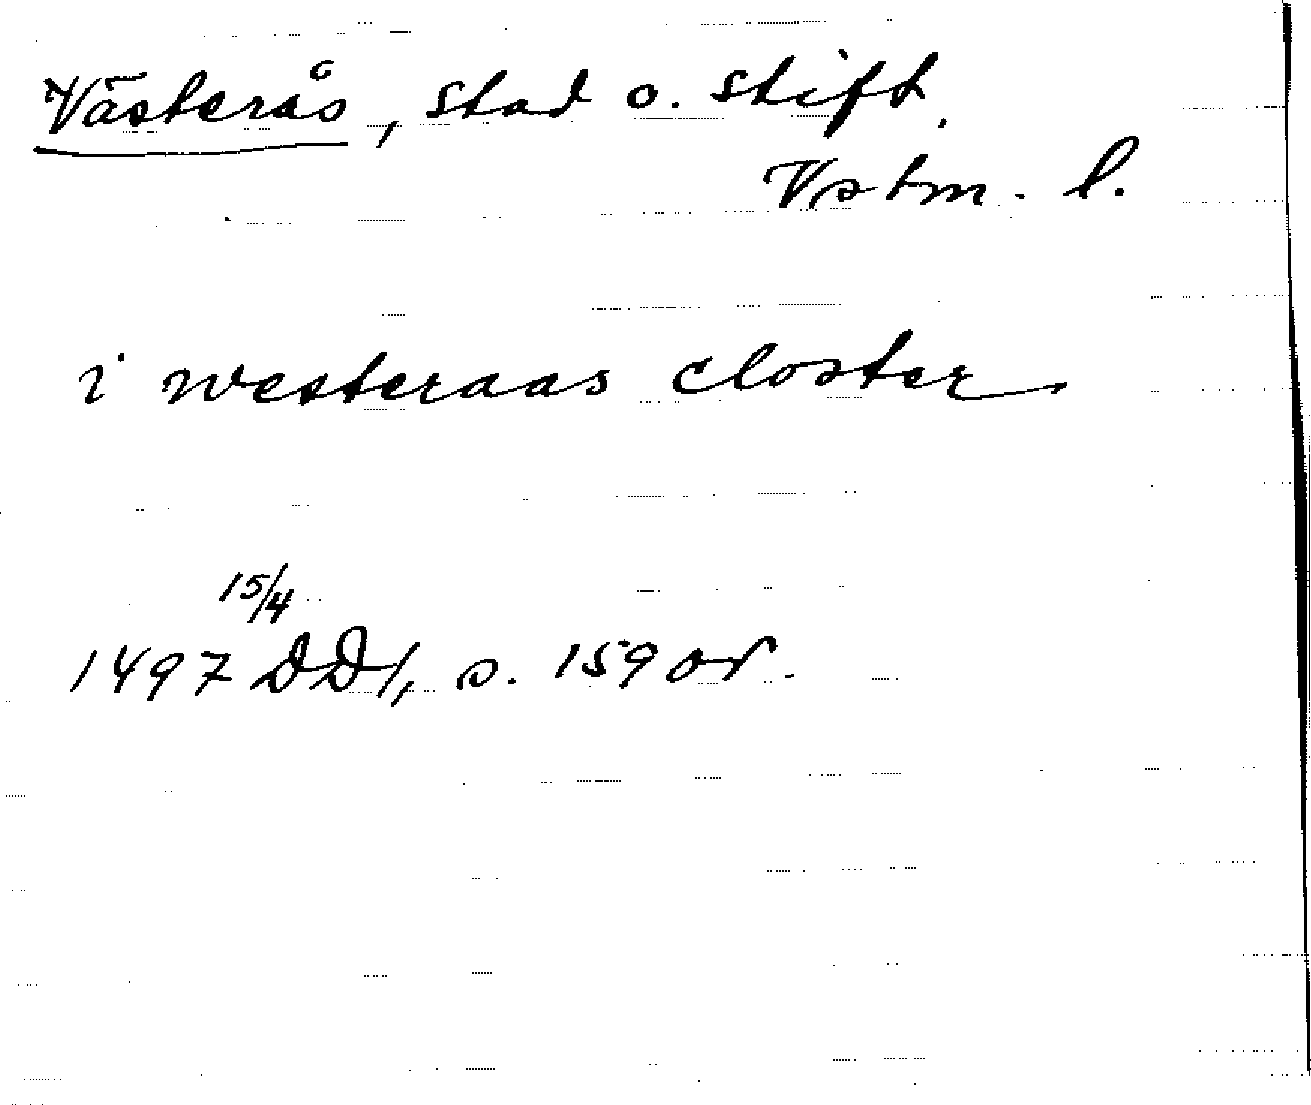 Västerås, stad o. stift.
Vstm. l.
i westeraas closter
15/4
1497 DD1, s. 159 or.